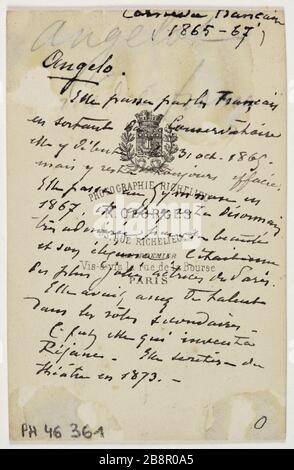 Comédie Française
1865-67
Angelo
Angelo.
Elle passa par les Français
en sortant du Conservatoire
elle y débuta 31 oct. 1865
mais y resta toujours effacée
Elle passa au Gymnase en
PHOTOGRAPHIE RICHELIEU
1867, désormais
A. GEORGES
très admirée pour sa beauté
RUE RICHELIEU
et son élégance
PREMIER
Vis-à-vis la rue de la Bourse
des plus jolies actrices de Paris.
PARIS
Elle avait assez de talent
dans les rôles secondaires.
C'est elle qui inventa
Réjane. Elle se retira du
théâtre en 1873.
PH 46 361
alamy
Image ID: 2B8R0A5
www.alamy.com